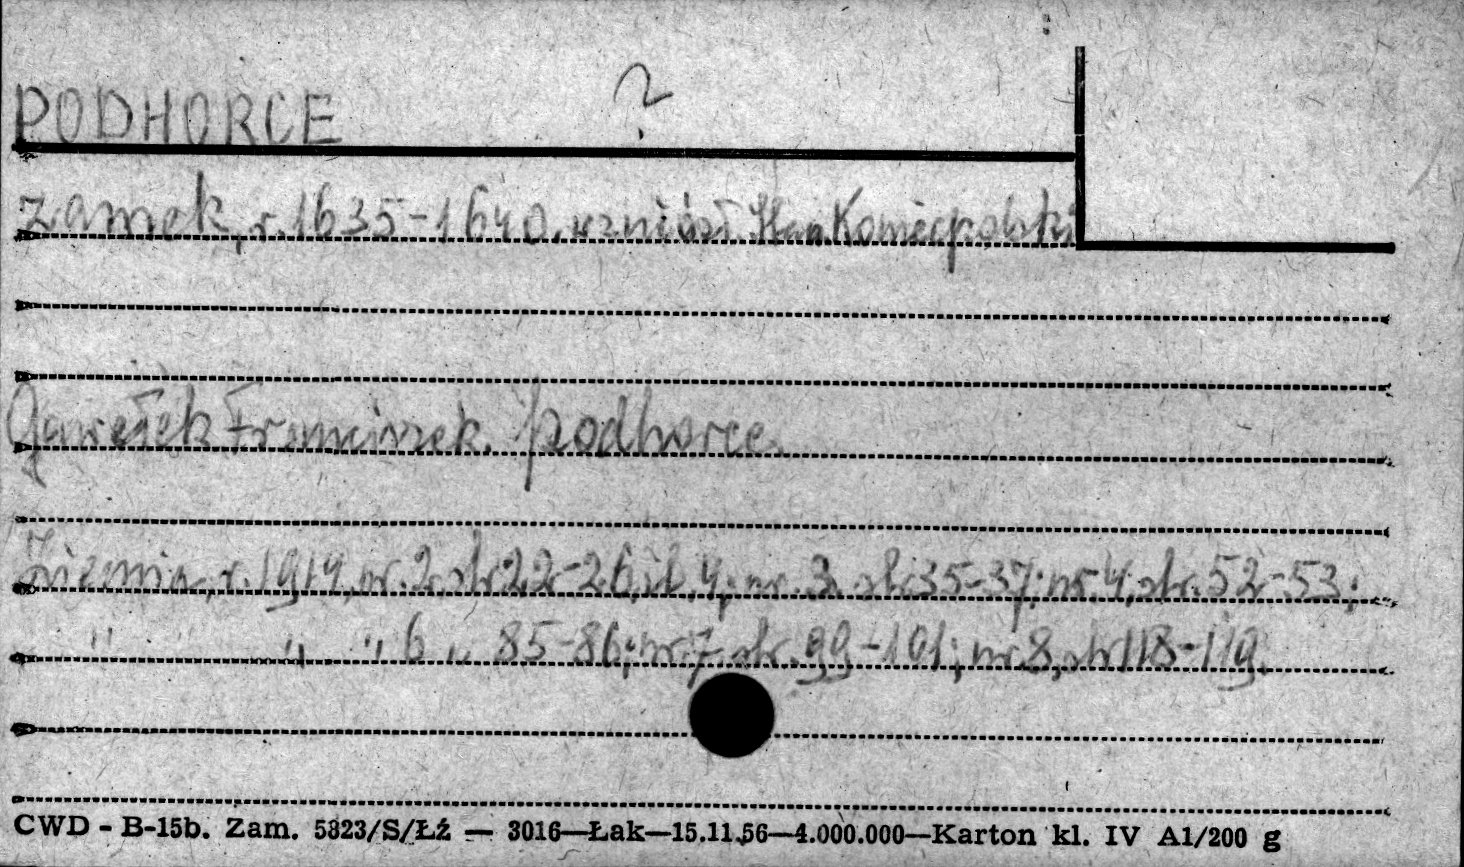 PODHORCE ?
Zamek, r. 1635-1640. wzniósł Het. Koniecpolski
Gawełek Franciszek. Podhorce.
Ziemia, r. 1914, nr. 2. str. 22-26, il. 4; nr. 3. str. 35-37; nr. 4, str. 52-53;
" " " 6 " 85-86; nr. 7. str. 99-101; nr. 8, str. 118-119.
CWD - B-15b. Zam. 5323/S/Łź — 3016—Łak—15.11.56—4.000.000—Karton kl. IV A1/200 g